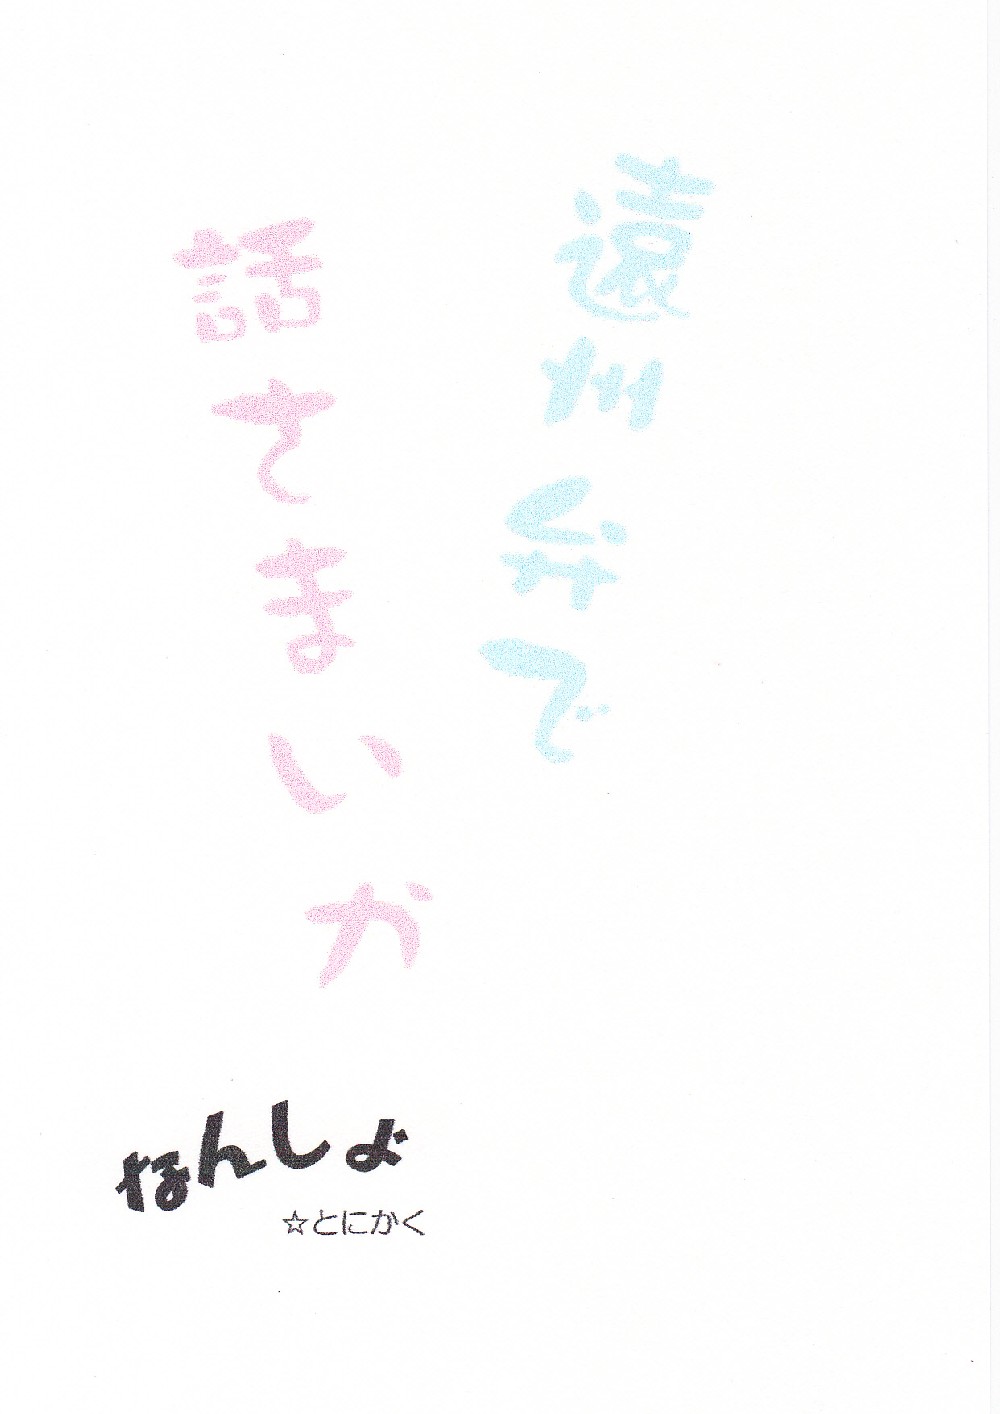 遠州弁で
話さまいか
なんしょ
☆とにかく